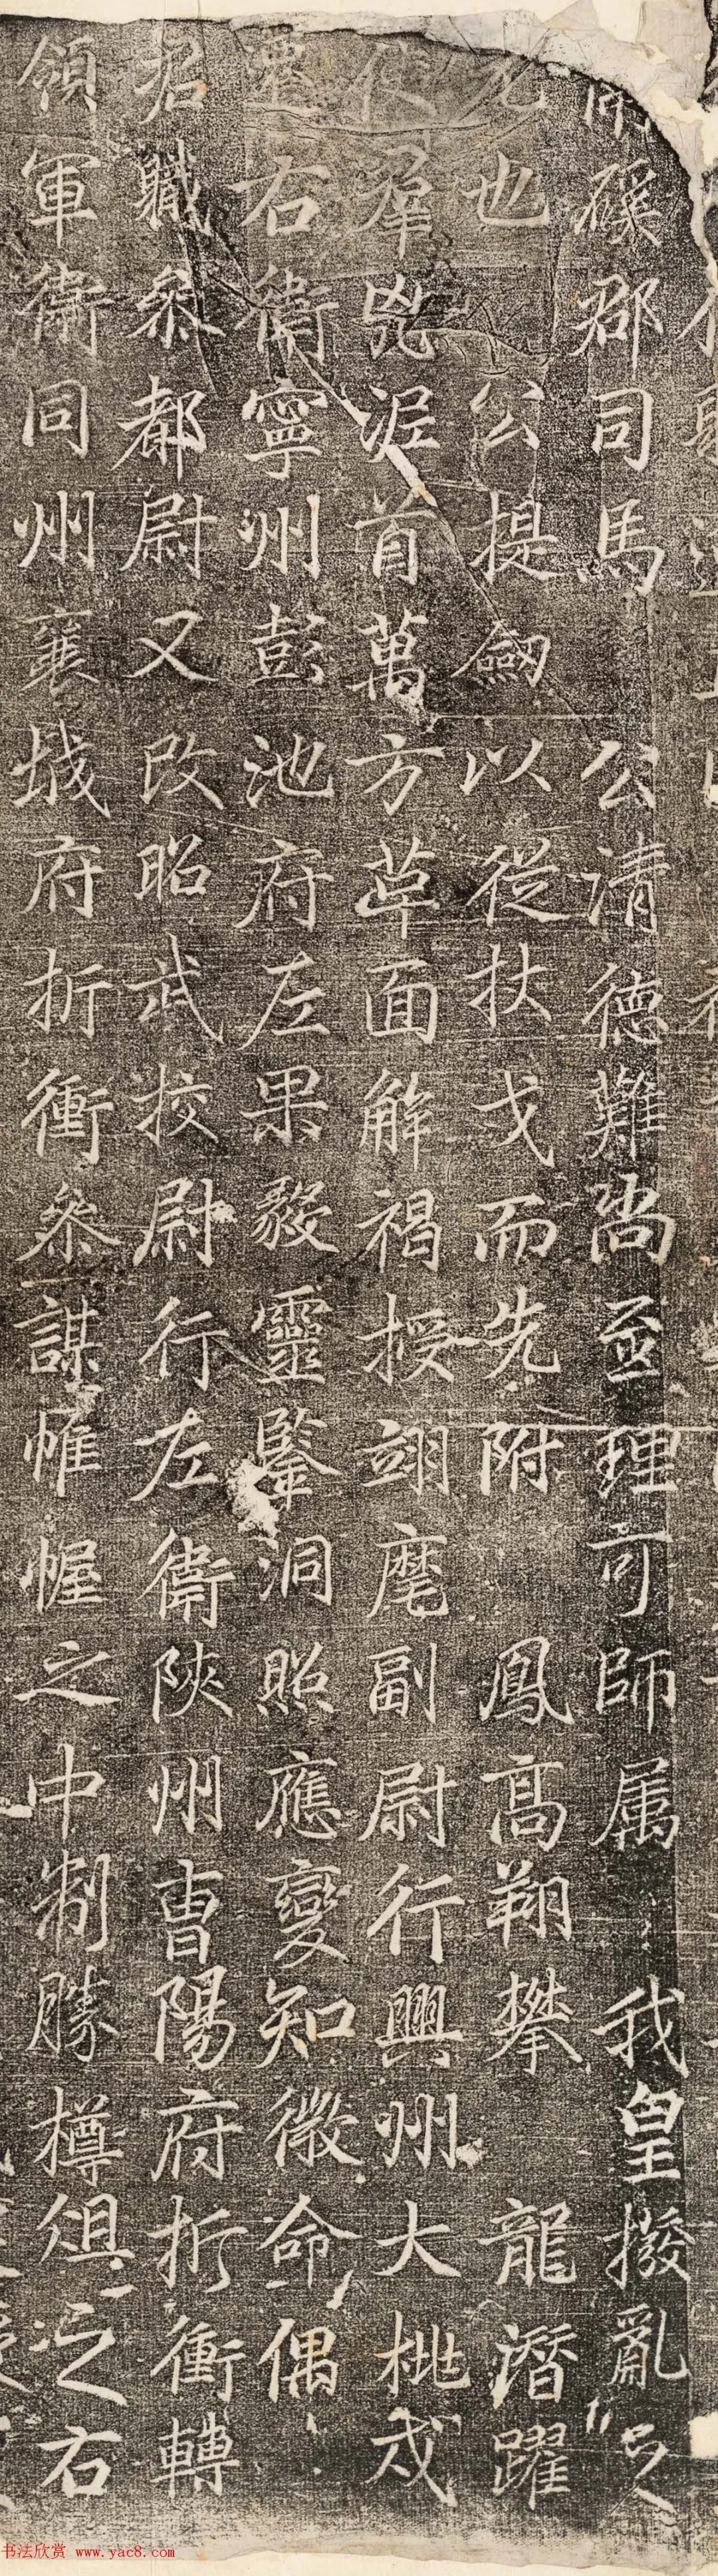 磎郡司馬公清德難尚至理可師属我皇撥亂之
元也公提劒以從扙戈而先附鳳高翔攀龍潛躍
使羣兇泥首萬方革面解褐授翊麾副尉行興州大桃戍
主右衛寧州彭池府左果毅靈鑒洞照應變知微命偶
君職叅都尉又改昭武挍尉行左衛陝州曺陽府折衝轉
領軍衛同州襄城府折衝叅謀帷幄之中制勝樽俎之右
书法欣赏 www.yac8.com